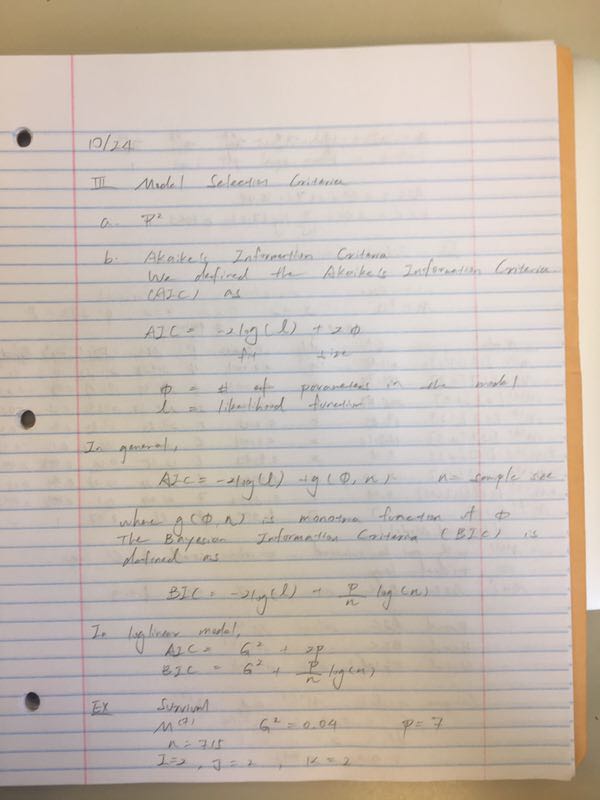 10/24
III Model Selection Criteria
a. R²
b. Akaike's Information Criteria
We defined the Akaike's Information Criteria
(AIC) as
AIC = -2log(l) + 2Φ
fit size
Φ = # of parameters in the model
l = likelihood function
In general,
AIC = -2log(l) + g(Φ, n) n = sample size
where g(Φ, n) is monotna function of Φ
The Bayesian Information Criteria (BIC) is
defined as
BIC = -2log(l) + p/n log(n)
In loglinear model,
AIC = G² + 2p
BIC = G² + p/n log(n)
EX Survival
M⁽⁷⁾ G² = 0.04 p = 7
n = 715
I=2, J=2, K=2